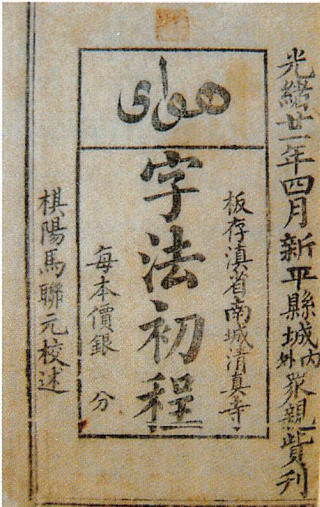 光緒廿一年四月新平縣城內外眾親貲刊
هوای
板存滇省南城清真寺
字法初程
每本價銀 分
棋陽馬聯元校述